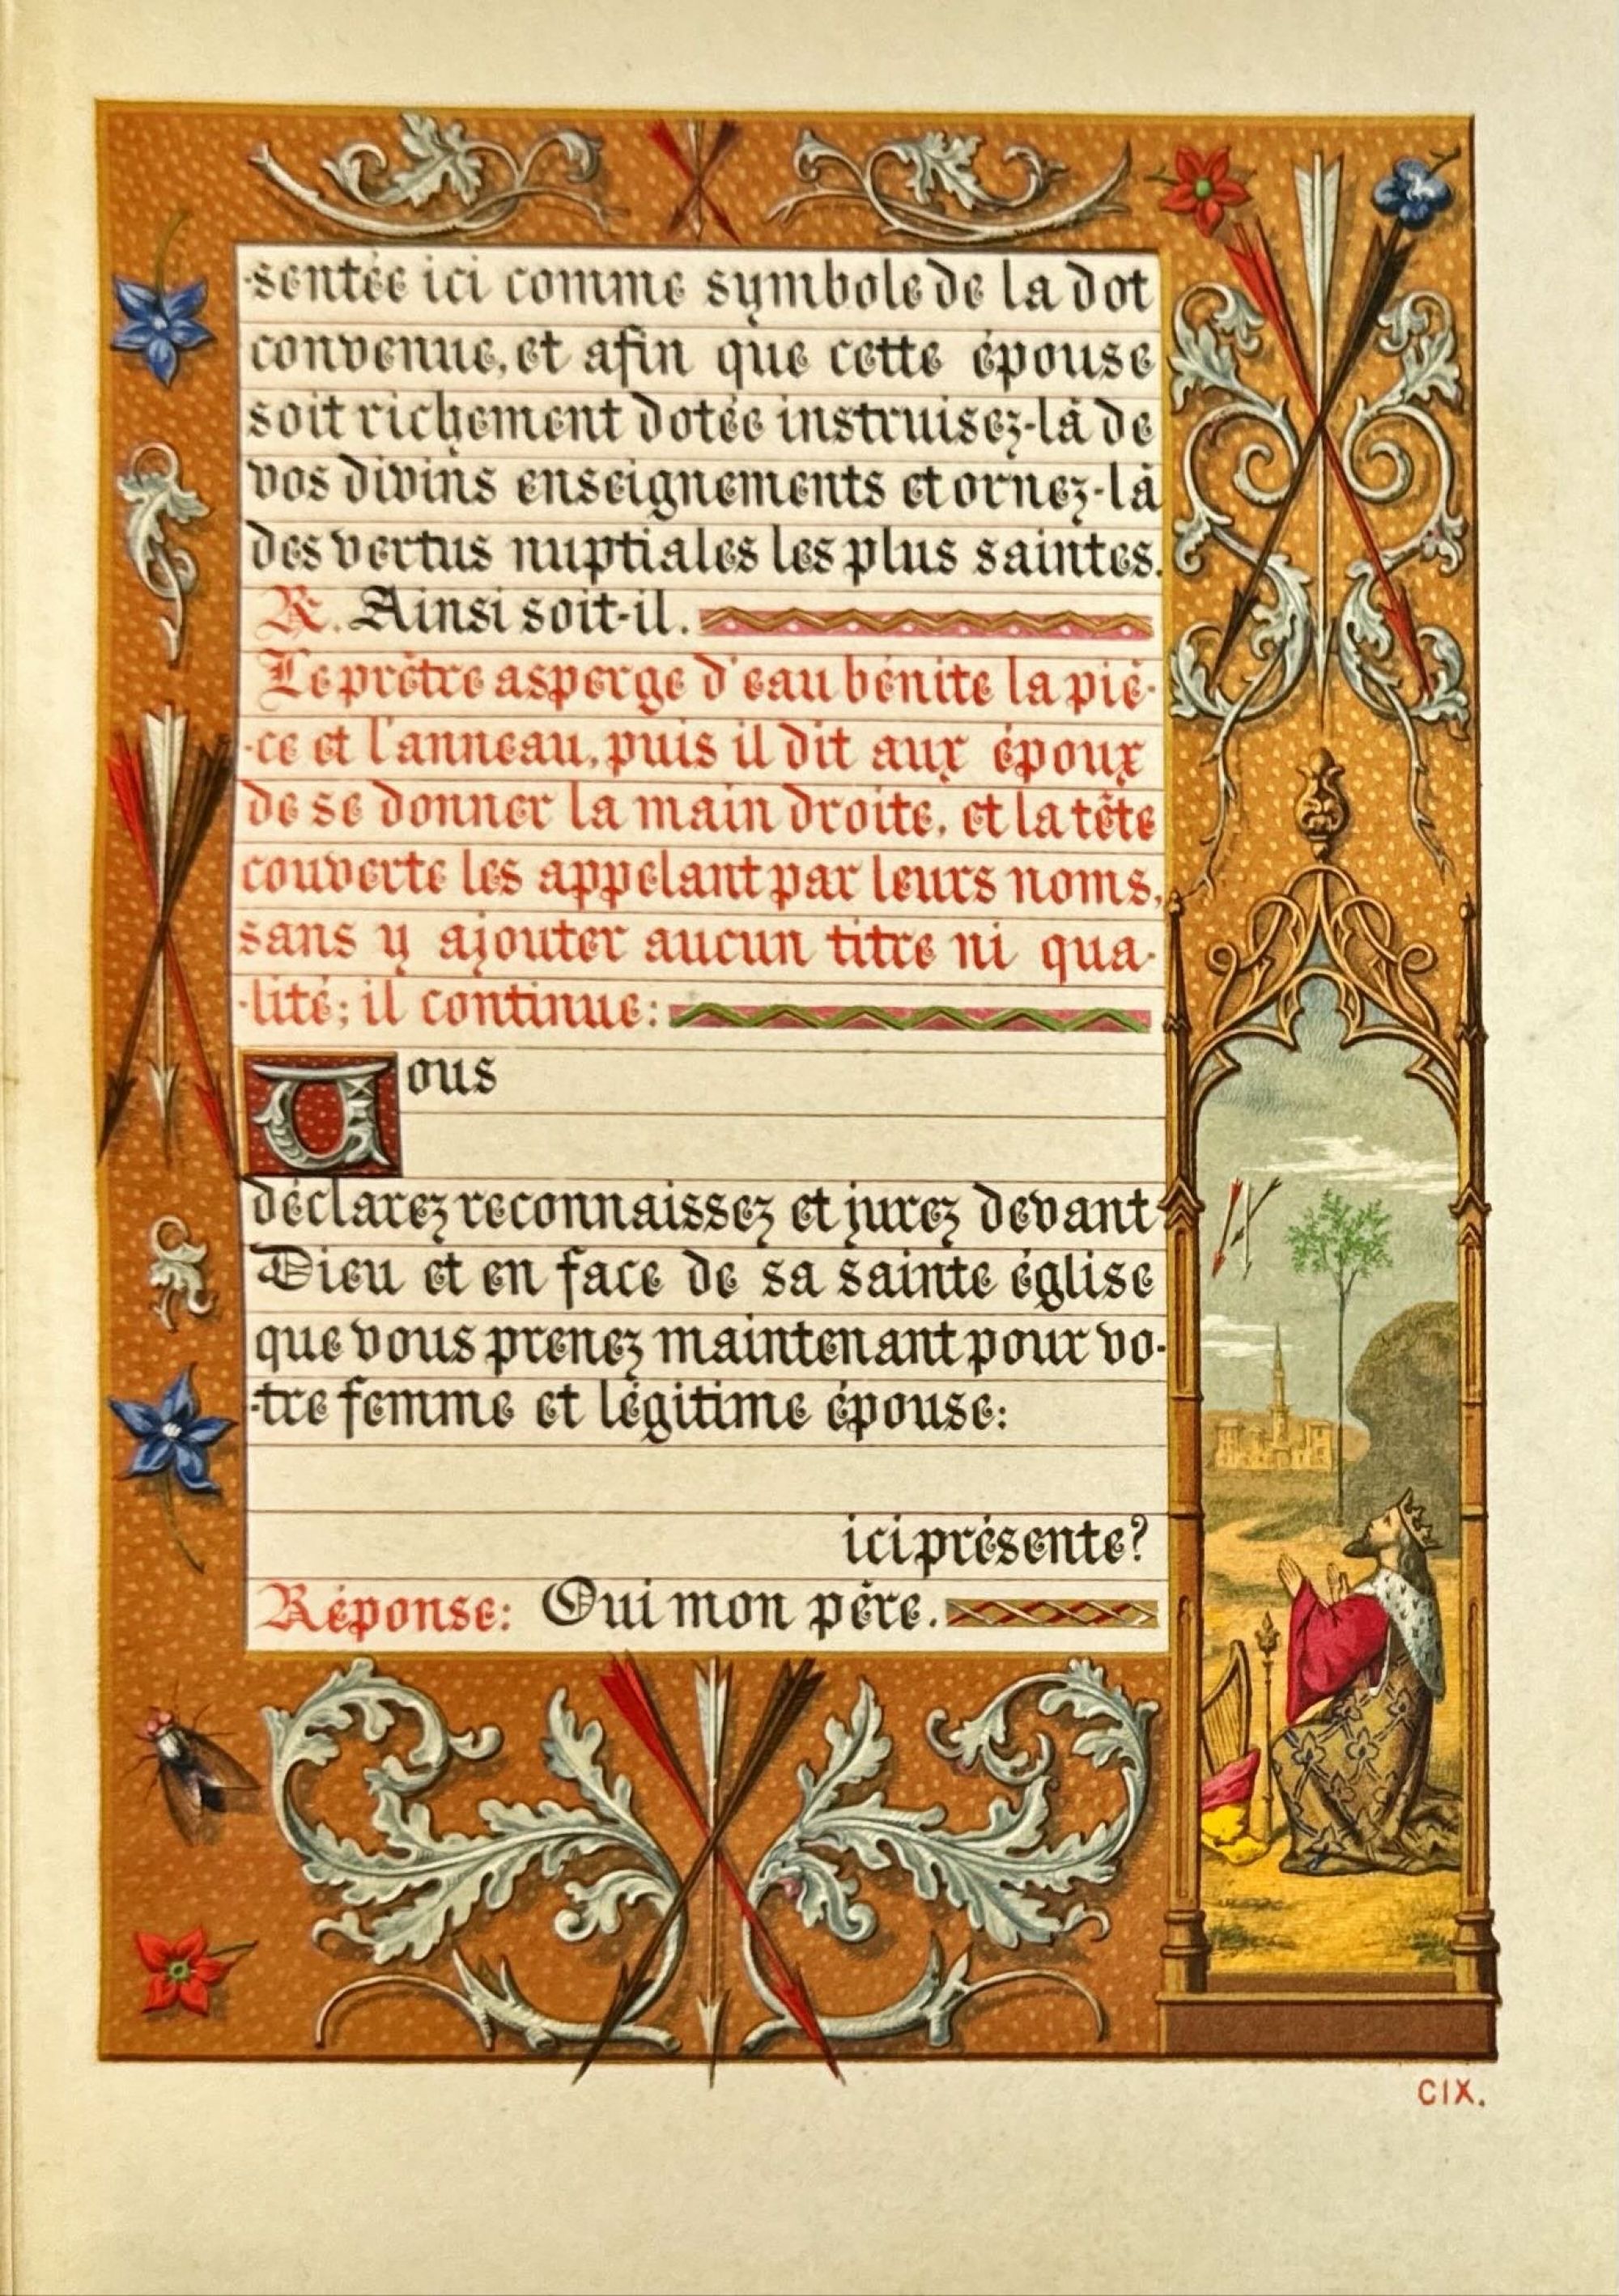 -sentée ici comme symbole de la dot
convenue, et afin que cette épouse
soit richement dotée instruisez-là de
vos divins enseignements et ornez-là
des vertus nuptiales les plus saintes.
R. Ainsi soit-il.
Le prêtre asperge d'eau bénite la piè-
-ce et l'anneau, puis il dit aux époux
de se donner la main droite, et la tête
couverte les appelant par leurs noms,
sans y ajouter aucun titre ni qua-
-lité; il continue:
Vous
déclarez reconnaissez et jurez devant
Dieu et en face de sa sainte église
que vous prenez maintenant pour vo-
-tre femme et légitime épouse:
ici présente?
Réponse: Oui mon père.
CIX.